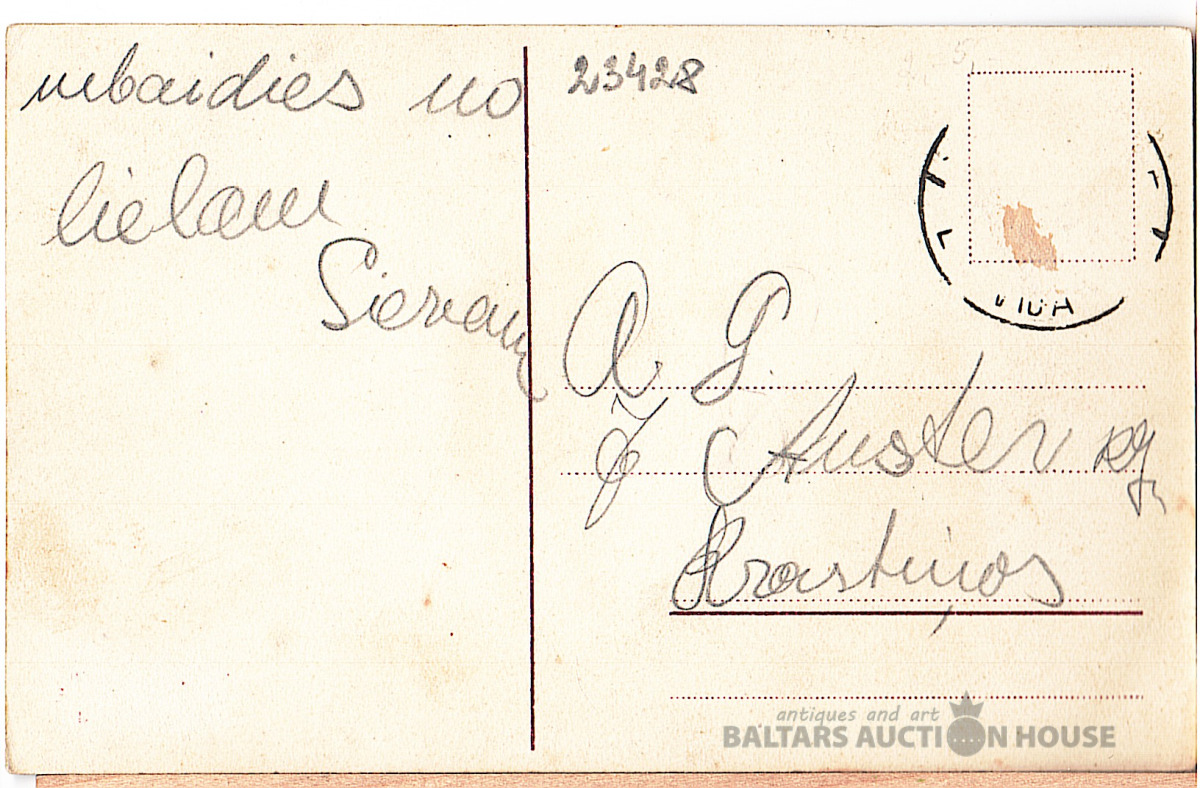 nebaidies no
lielam
Sievam
23428
A. G.
J Auster kg,
Krastiņos
antiques and art
BALTARS AUCTION HOUSE